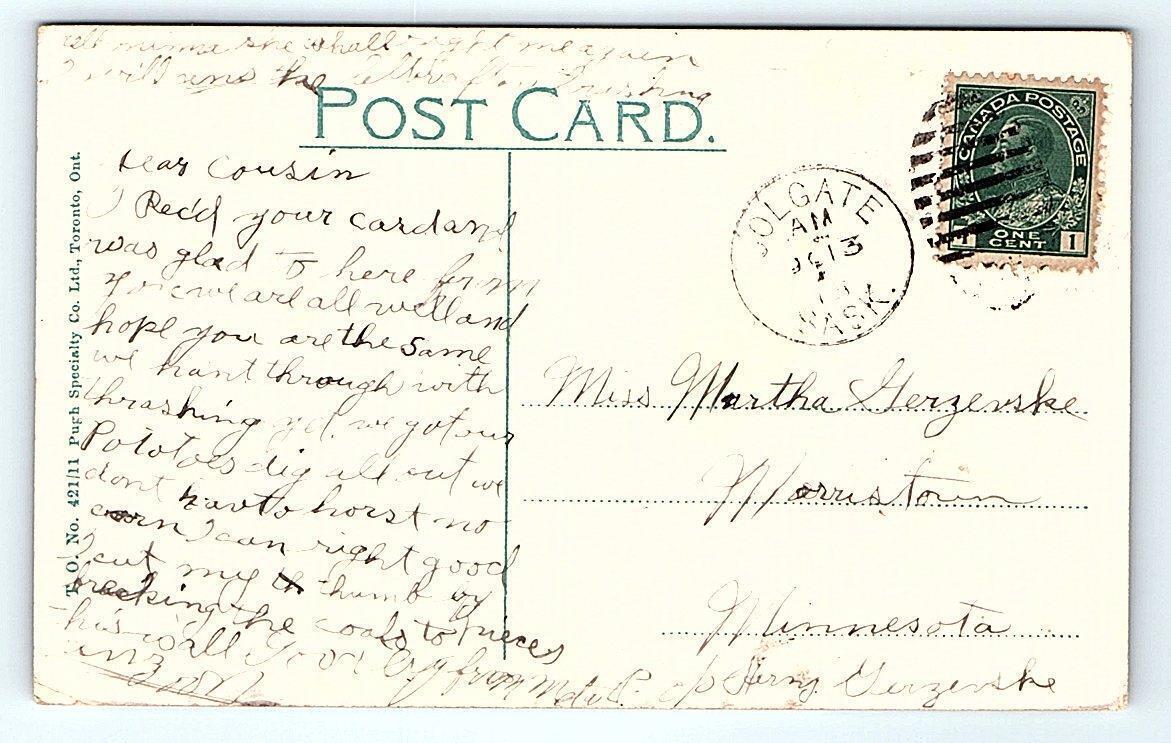 tell minna she shall right me again
I will the
POST CARD.
T. O. No. 421/11 Pugh Specialty Co. Ltd., Toronto, Ont.
Dear Cousin
I Rec'd your card and
was glad to here from
you we are all well and
hope you are the same
we hant through with
thrashing yet. we got our
Pototoes dig all out we
dont havto horst no
corn I can right good
I cut my thumb by
breaking the coals to pieces
this is all Good By from
COLGATE
AM
OC 13
SASK.
CANADA POSTAGE
1 ONE CENT 1
Miss Martha Gerzevske
Morristown
Minnesota
c/o Herny Gerzevske